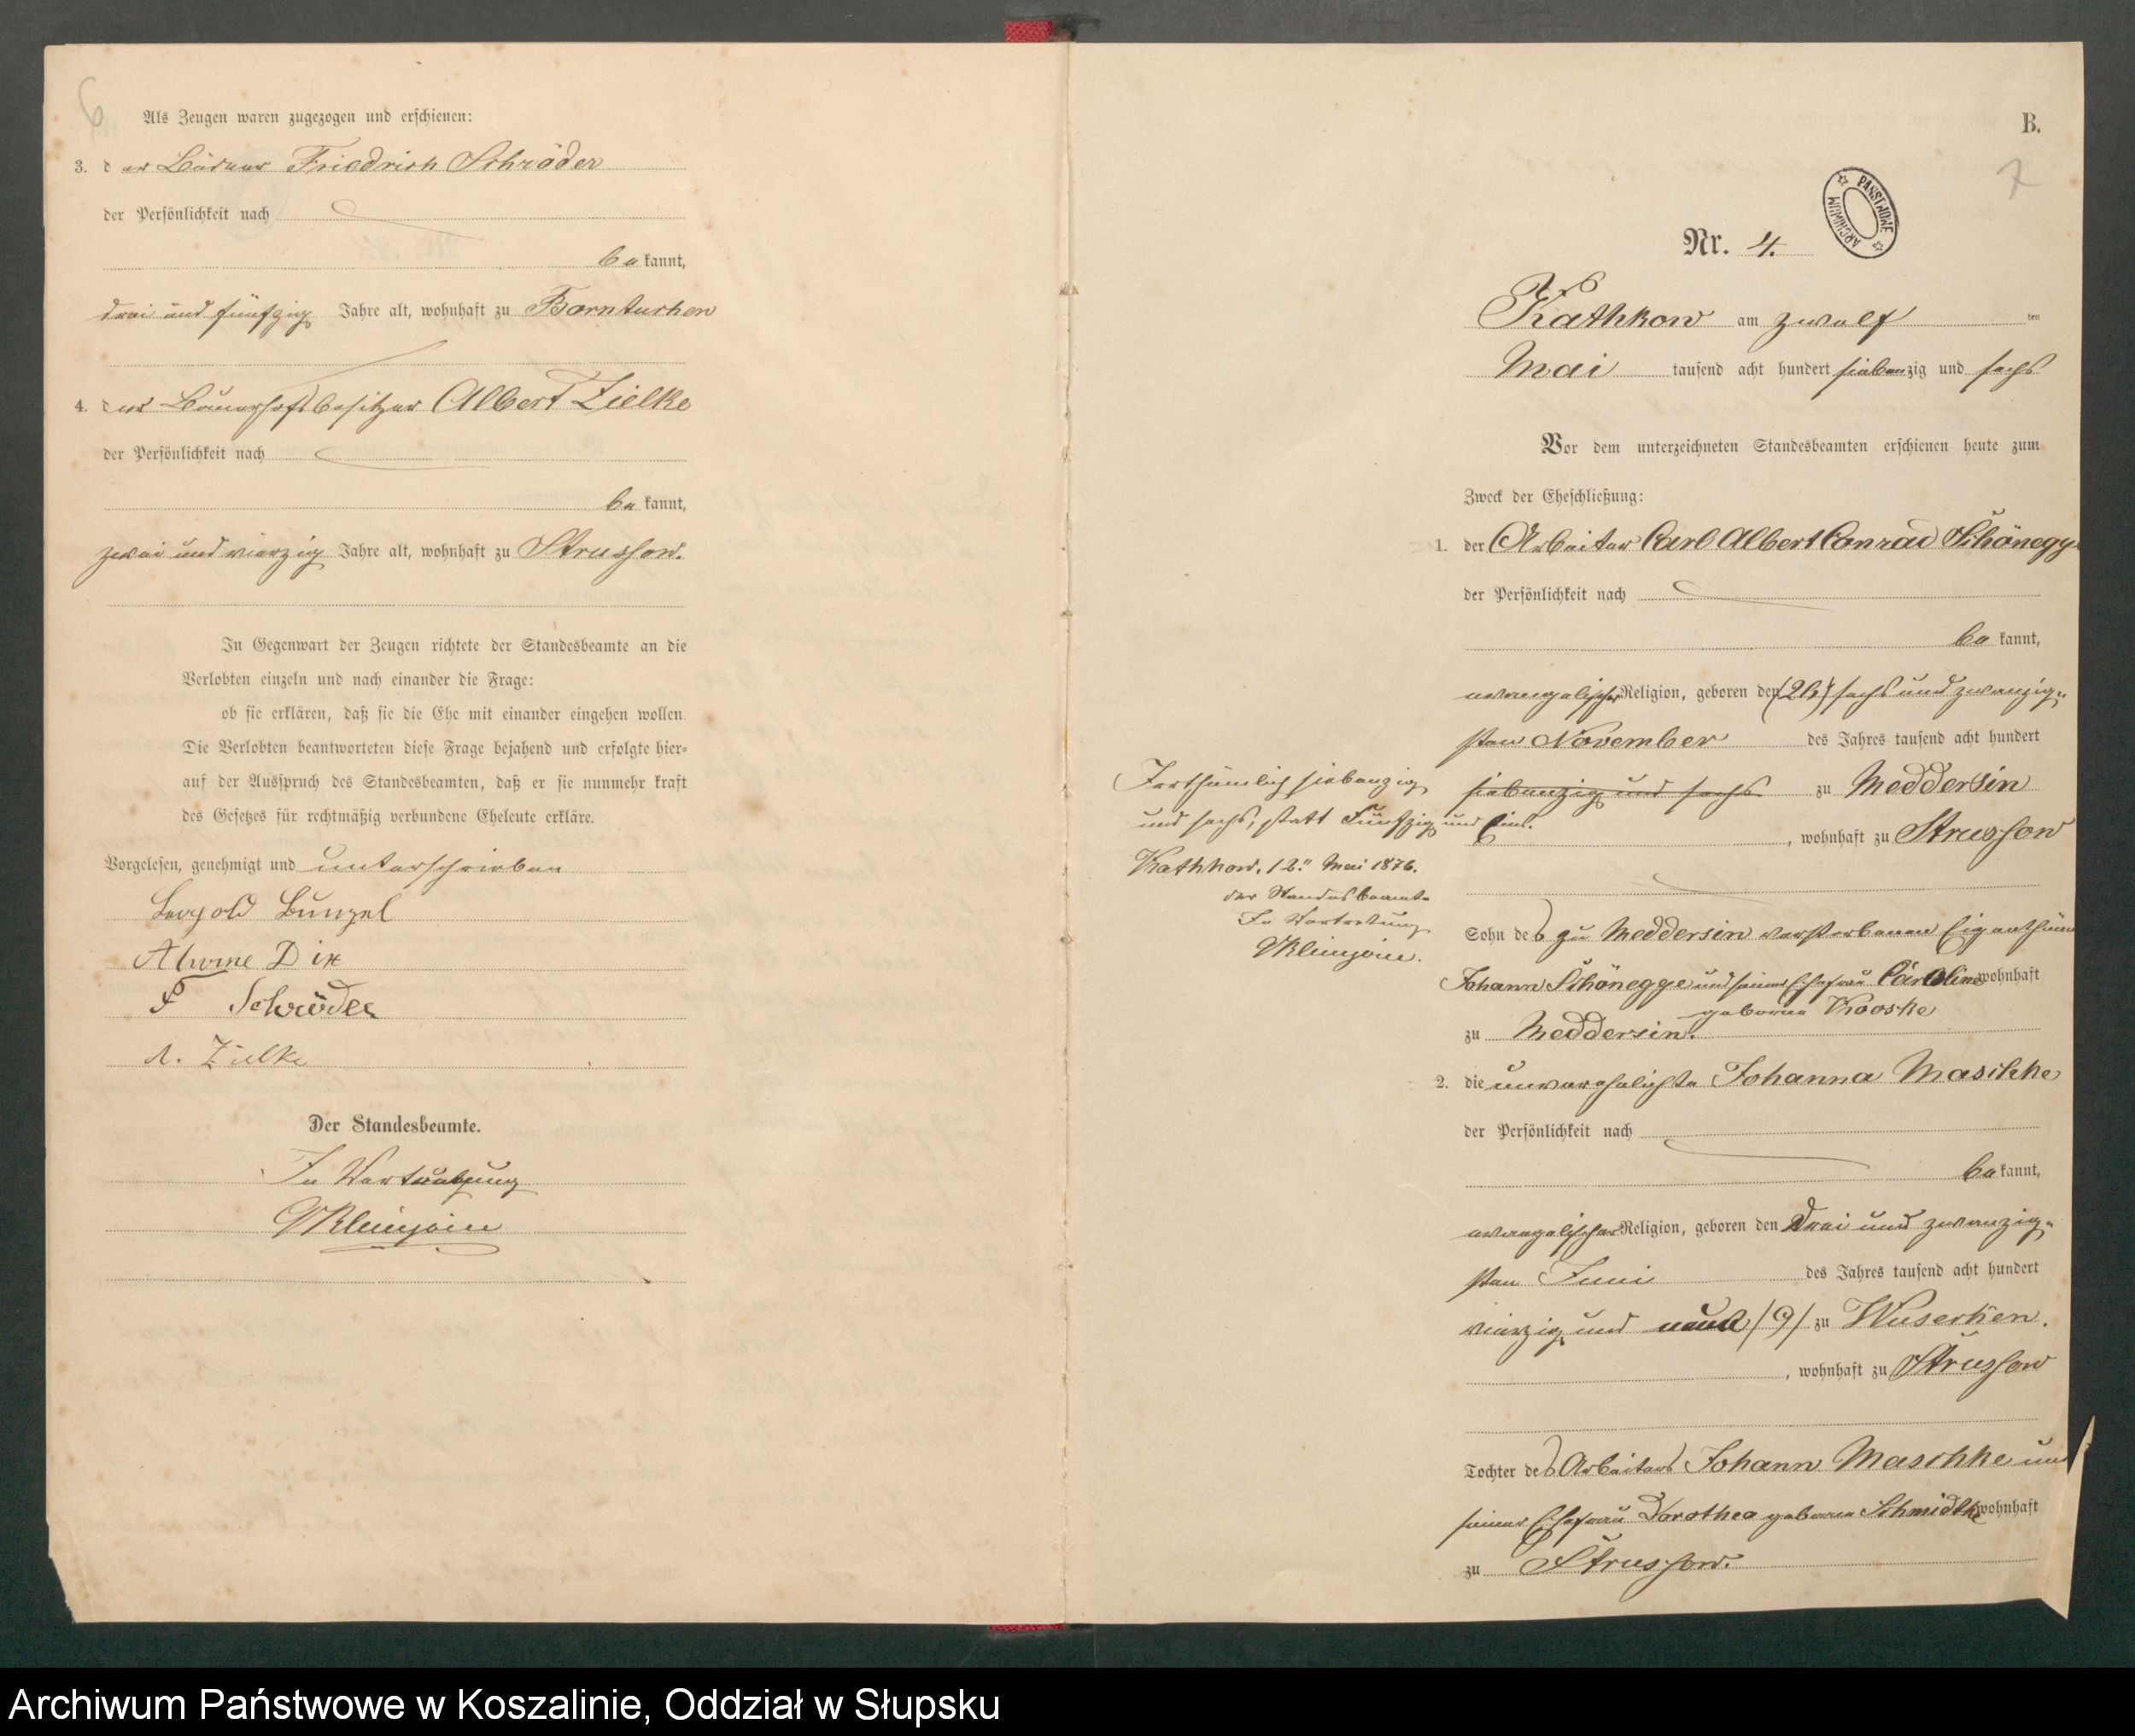 6
Als Zeugen waren zugezogen und erschienen:
3. der Büdner Friedrich Schröder
der Persönlichkeit nach
bekannt,
drei und fünfzig Jahre alt, wohnhaft zu Borntuchen
4. der Bauerhofsbesitzer Albert Zielke
der Persönlichkeit nach
bekannt,
zwei und vierzig Jahre alt, wohnhaft zu Strussow.
In Gegenwart der Zeugen richtete der Standesbeamte an die
Verlobten einzeln und nach einander die Frage:
ob sie erklären, daß sie die Ehe mit einander eingehen wollen.
Die Verlobten beantworteten diese Frage bejahend und erfolgte hier-
auf der Ausspruch des Standesbeamten, daß er sie nunmehr kraft
des Gesetzes für rechtmäßig verbundene Eheleute erkläre.
Vorgelesen, genehmigt und unterschrieben
Leopold Bunzel
Alwine Dix
F Schröder
A. Zielke
Der Standesbeamte.
In Vertretung
B.
7
PAŃSTWOWE ARCHIWUM
Nr. 4.
Kathkow am zwölften
Mai tausend acht hundert siebenzig und sechs
Vor dem unterzeichneten Standesbeamten erschienen heute zum
Zweck der Eheschließung:
1. der Arbeiter Carl Albert Conrad Schönegge
der Persönlichkeit nach
bekannt,
evangelischer Religion, geboren den (26) sechs und zwanzig-
sten November des Jahres tausend acht hundert
siebenzig und sechs zu Meddersin
, wohnhaft zu Strussow
Irrthümlich siebenzig
und sechs, statt Fünfzig und Eins.
Kathkow, 12ten Mai 1876.
der Standesbeamte
In Vertretung
Sohn des zu Meddersin verstorbenen Eigenthümers
Johann Schönegge und seiner Ehefrau Caroline wohnhaft
geborne Kooske
zu Meddersin.
2. die unverehelichte Johanna Maschke
der Persönlichkeit nach
bekannt,
evangelischer Religion, geboren den drei und zwanzig-
sten Juni des Jahres tausend acht hundert
vierzig und neun /9/ zu Wuserken.
, wohnhaft zu Strussow
Tochter des Arbeiters Johann Maschke und
seiner Ehefrau Dorothea geborne Schmidtke wohnhaft
zu Strussow.
Archiwum Państwowe w Koszalinie, Oddział w Słupsku